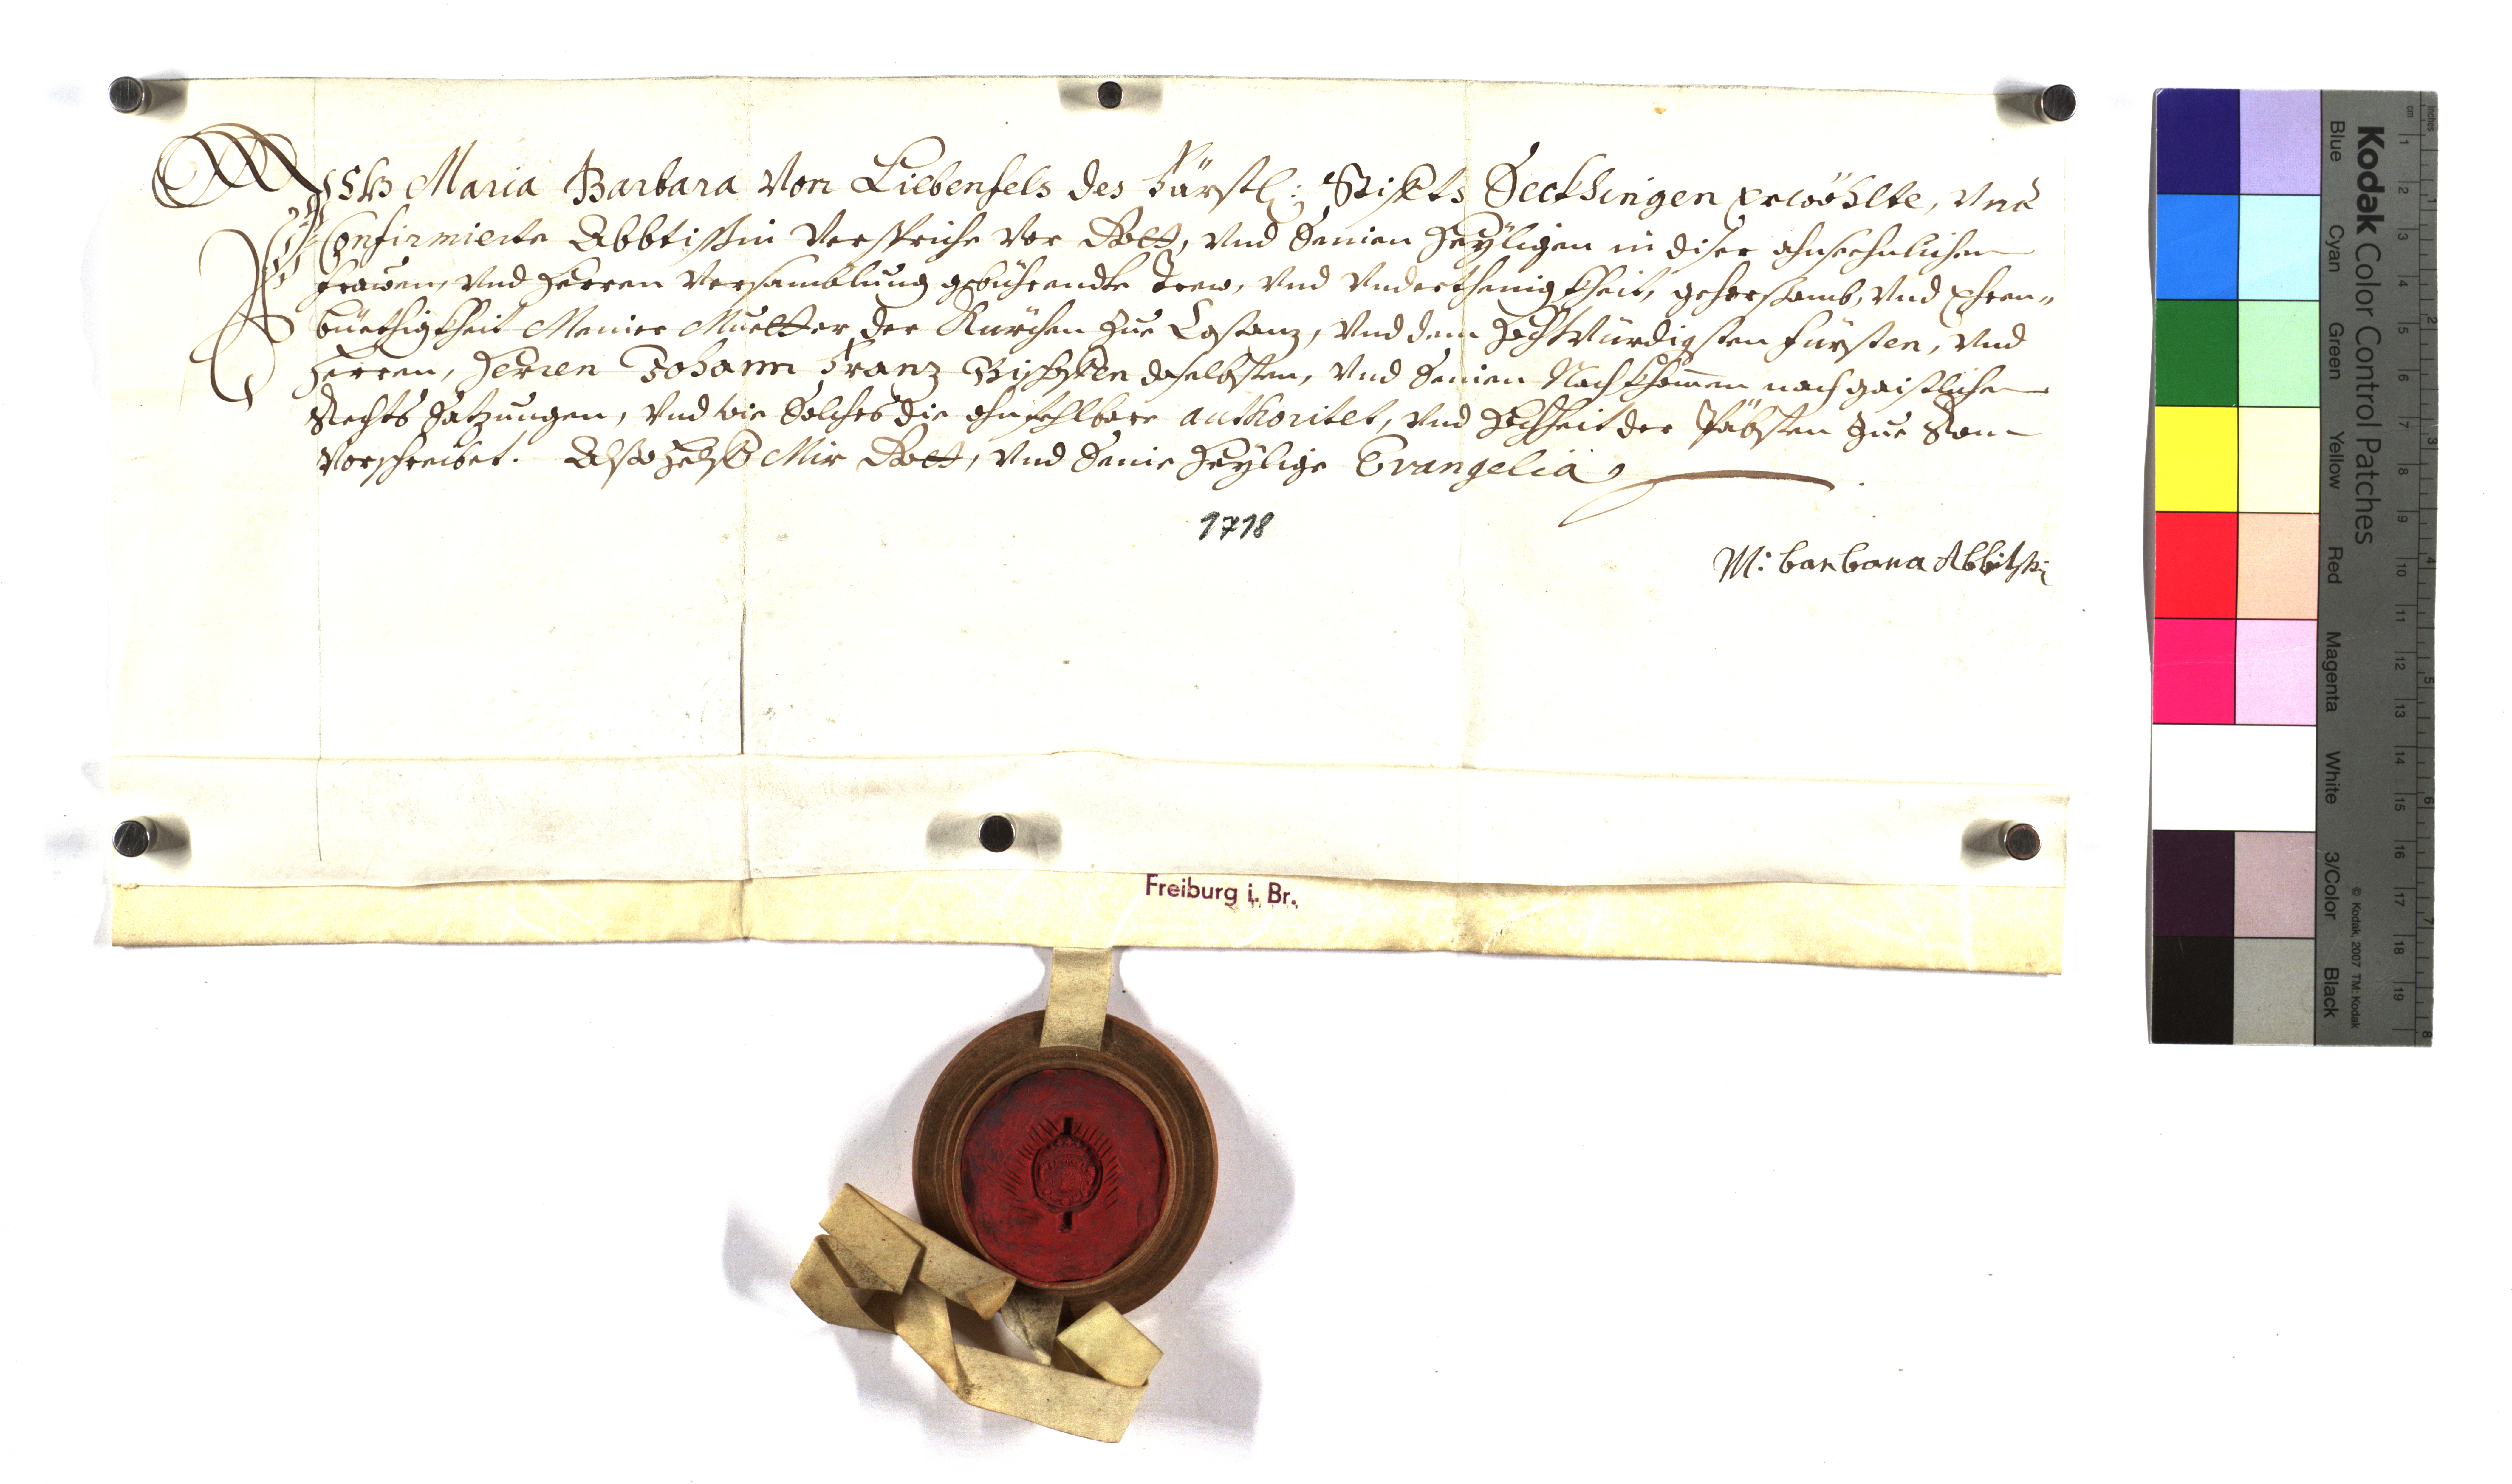 Wir Maria Barbara Von Liebenfels des Fürstl: Stiffts Seckhingen erwöhlte, Und
Confirmierte Abbtissin Verspriche Vor Gott, Und Seinen Heyligen in diser ahnsechnlichen
Frawen, Und Herren Versamblung gebührendte Trew, Und Underthenigkheit, gehorsamb, Und Ehren„
büethigkheit Meiner Muetter der Kürchen Zue Costanz, Und dem Hochwürdigsten Fürsten, Und
Herren, Herren Johann Franz Bischoffen daselbsten, Und Seinen Nachkhom̄en nach gaistlichen
Rechts Satzungen, Und wie Solches die ohnfehlbare authoritet, Und Hochheit der Päbsten Zue Rom
Vorschreibet. Also Helff Mir Gott, Und Seine Heylige Evangelia
1718
M: barbara Abbtissin
Freiburg i. Br.
Kodak Color Control Patches
Blue Cyan Green Yellow Red Magenta White 3/Color Black
© Kodak, 2007 TM: Kodak
inches 1 2 3 4 5 6 7 8
cm 1 2 3 4 5 6 7 8 9 10 11 12 13 14 15 16 17 18 19